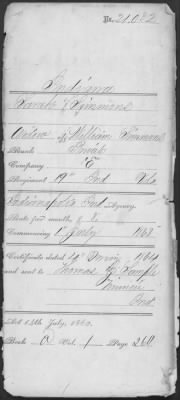 No. 21.082
Indiana
Sarah E Simmons
Widow of William Simmons
Rank Private
Company "E"
Regiment 19" Ind Vols
Indianapolis Ind Agency.
Rate per month, $ 8
Commencing 1" July 1863
Certificate dated 1864
and sent to Thomas
Ind
Act 14th July, 1862.
Book A Vol. 1 Page 260